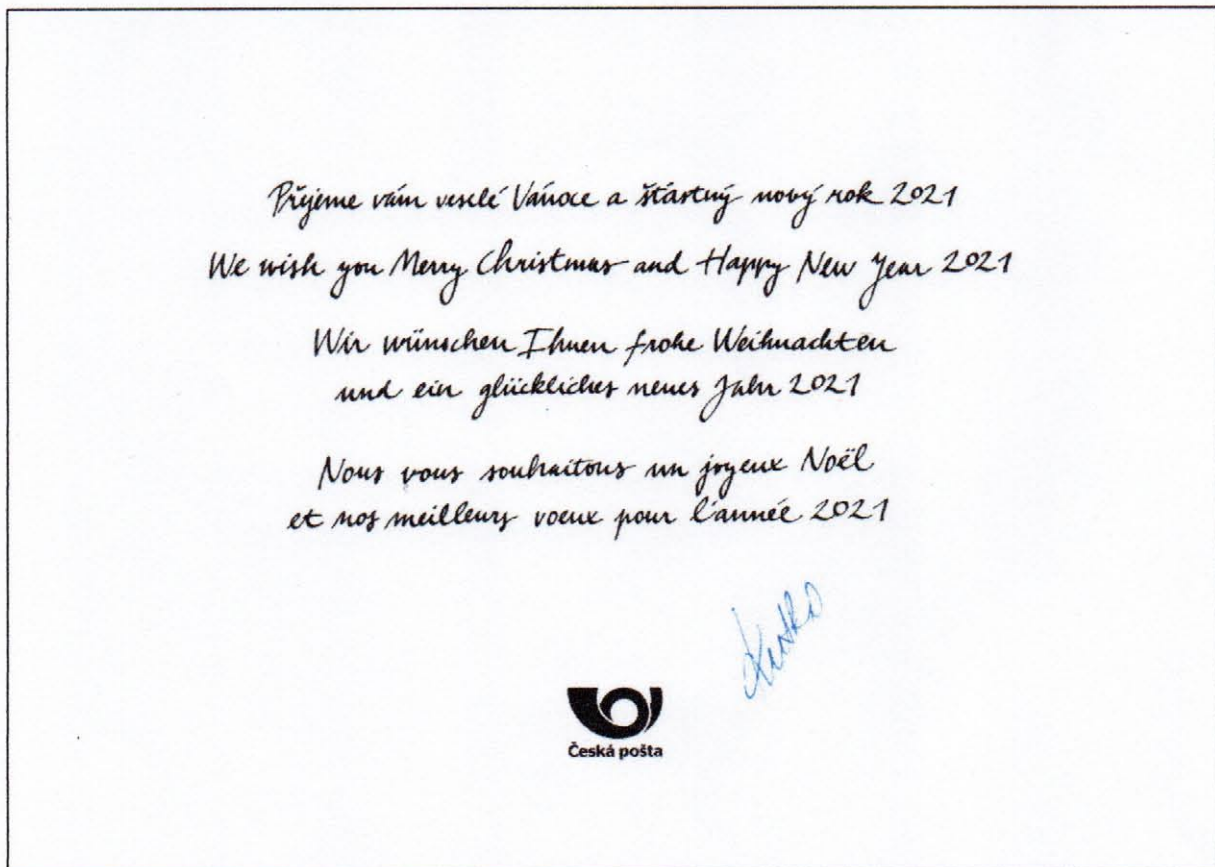 Přejeme vám veselé Vánoce a šťastný nový rok 2021
We wish you Merry Christmas and Happy New Year 2021
Wir wünschen Ihnen frohe Weihnachten
und ein glückliches neues Jahr 2021
Nous vous souhaitons un joyeux Noël
et nos meilleurs voeux pour l'année 2021
Česká pošta